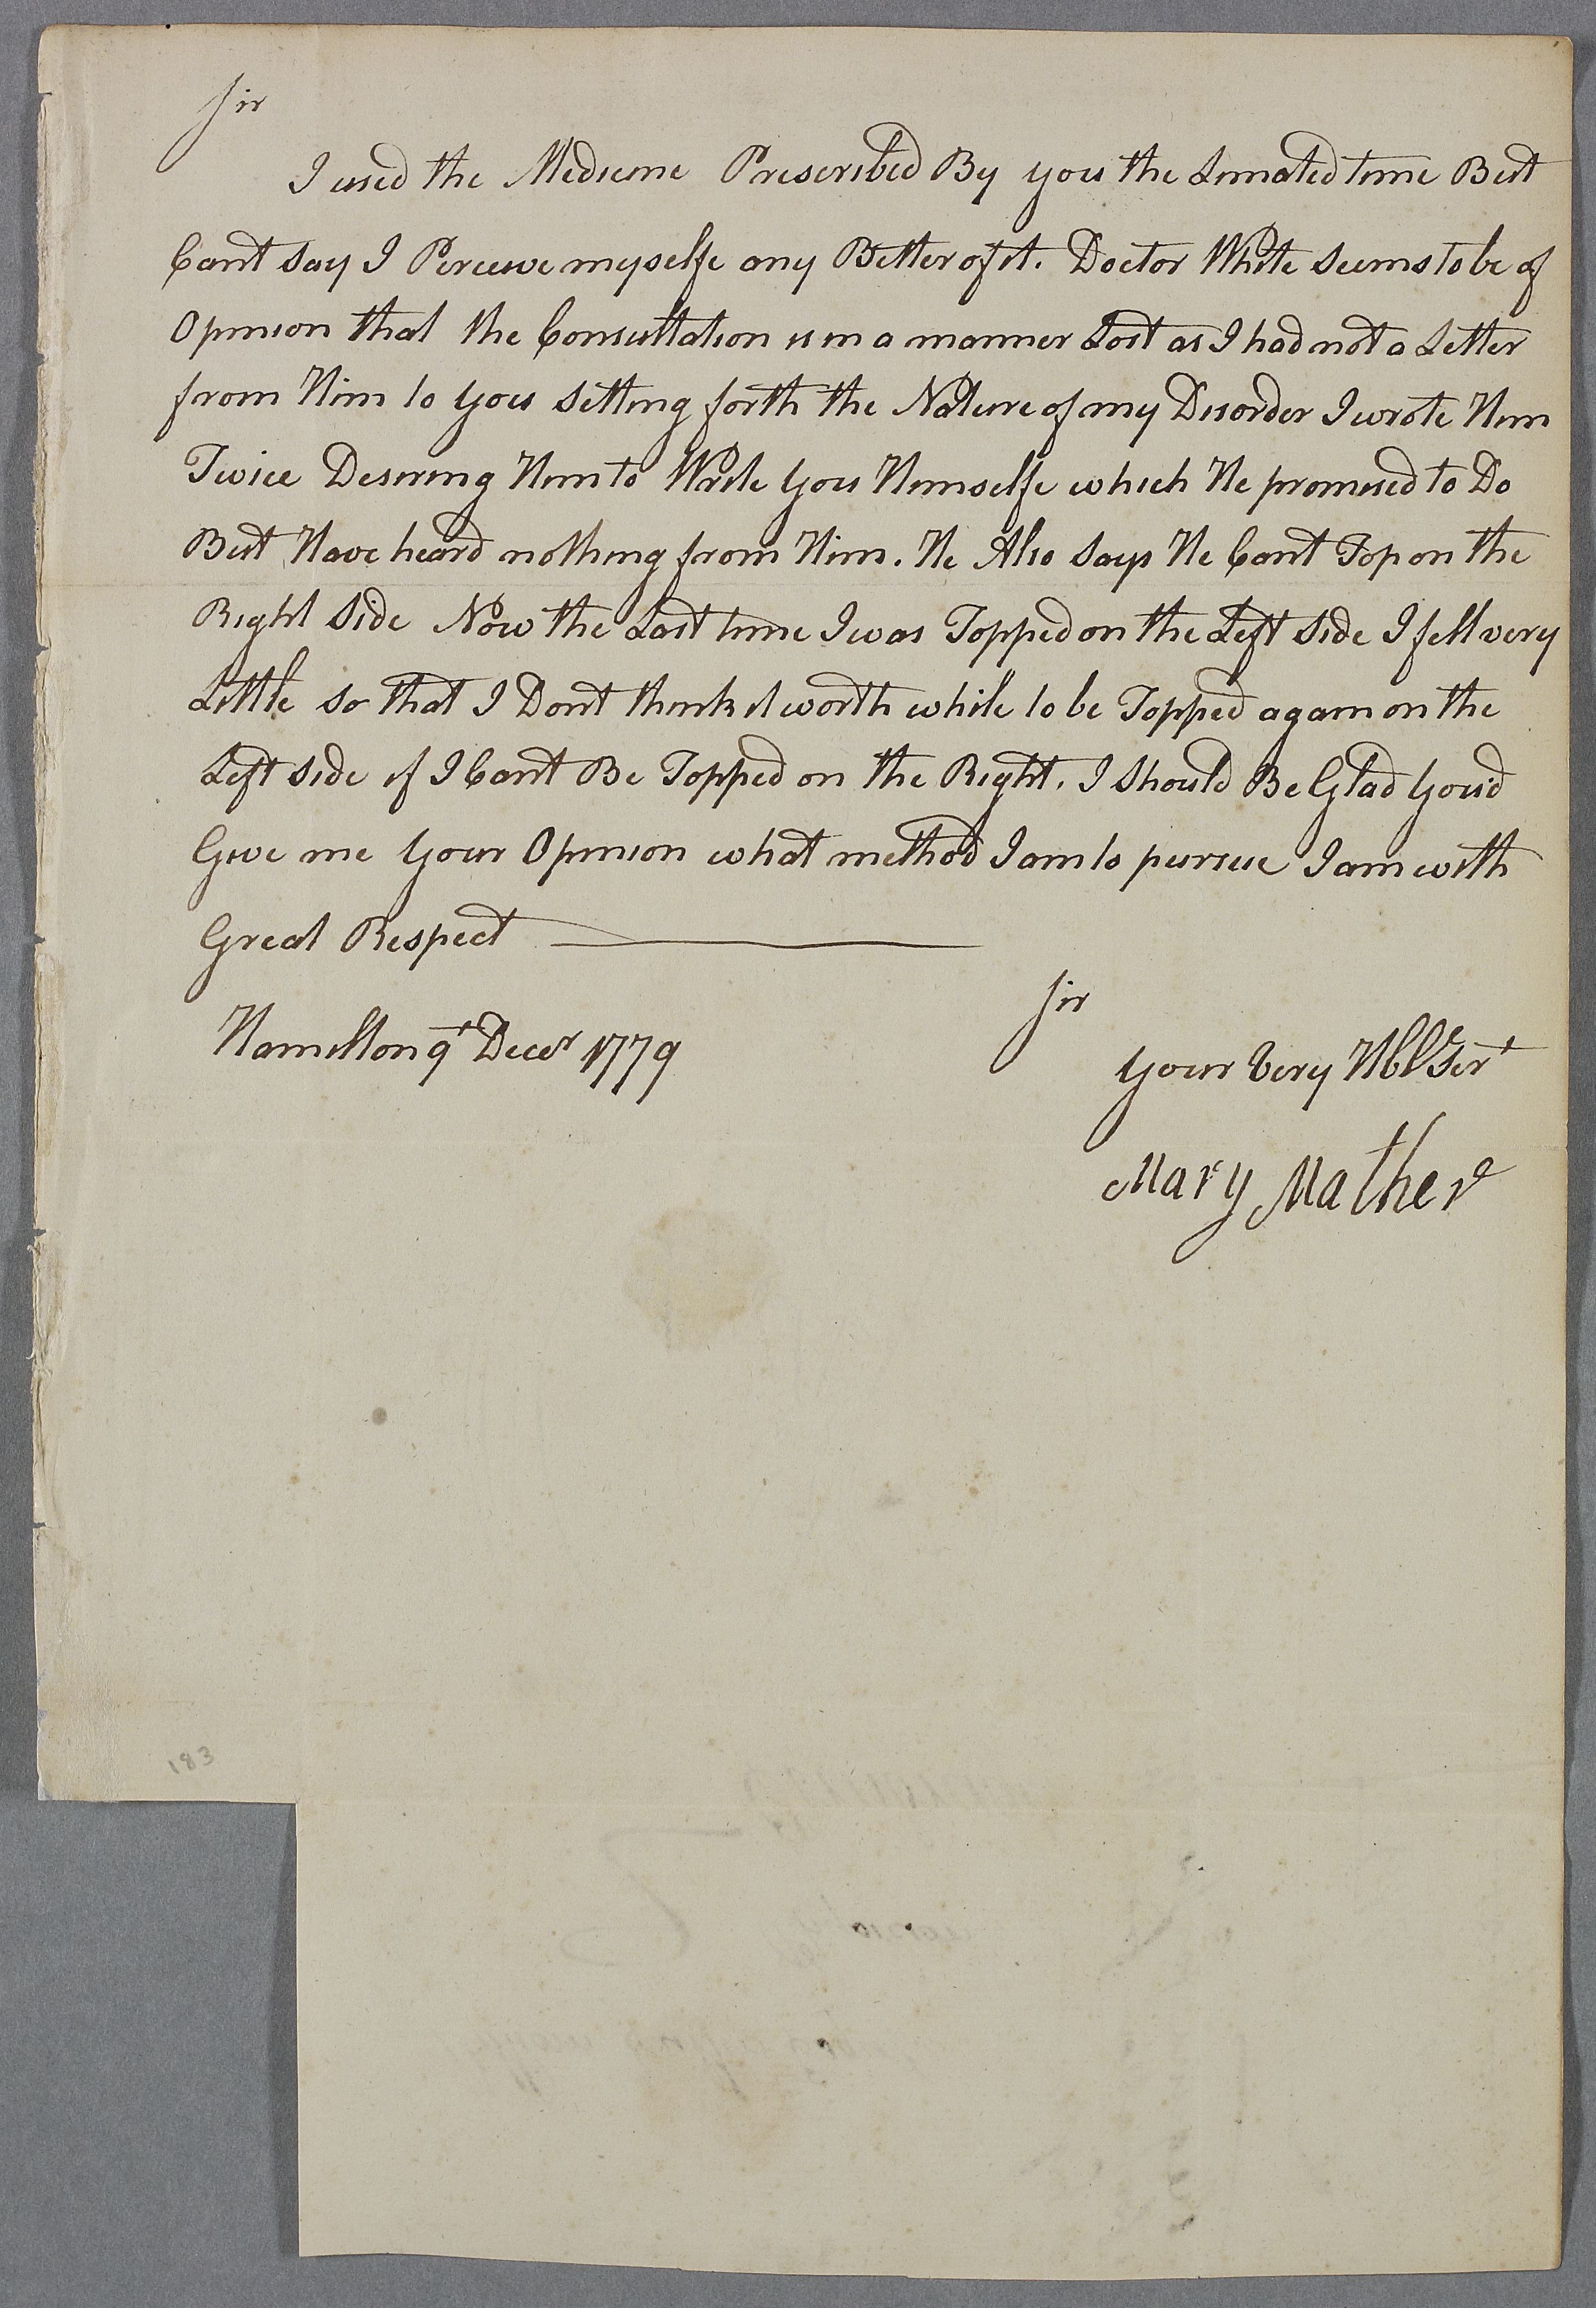 Sir
I used the Medicine Prescribed By you the Limated time But
Cant say I Perceive myselfe any Better of it. Doctor White seems to be of
Opinion that the Consultation is in a manner Lost as I had not a Letter
from Him to you setting forth the Nature of my Disorder I wrote Him
Twice Desiring Him to Write you Himselfe which He promised to Do
But Have heard nothing from Him. He Also says He Cant Tap on the
Right side Now the Last time I was Tapped on the Left side I fell very
Little so that I Dont think it worth while to be Tapped again on the
Left side if I Cant Be Tapped on the Right. I should Be Glad you'd
Give me your Opinion what method I am to pursue I am with
Great Respect
Sir
Hamilton 9t Decer 1779
your very Hble Sert
Mary Mather
183